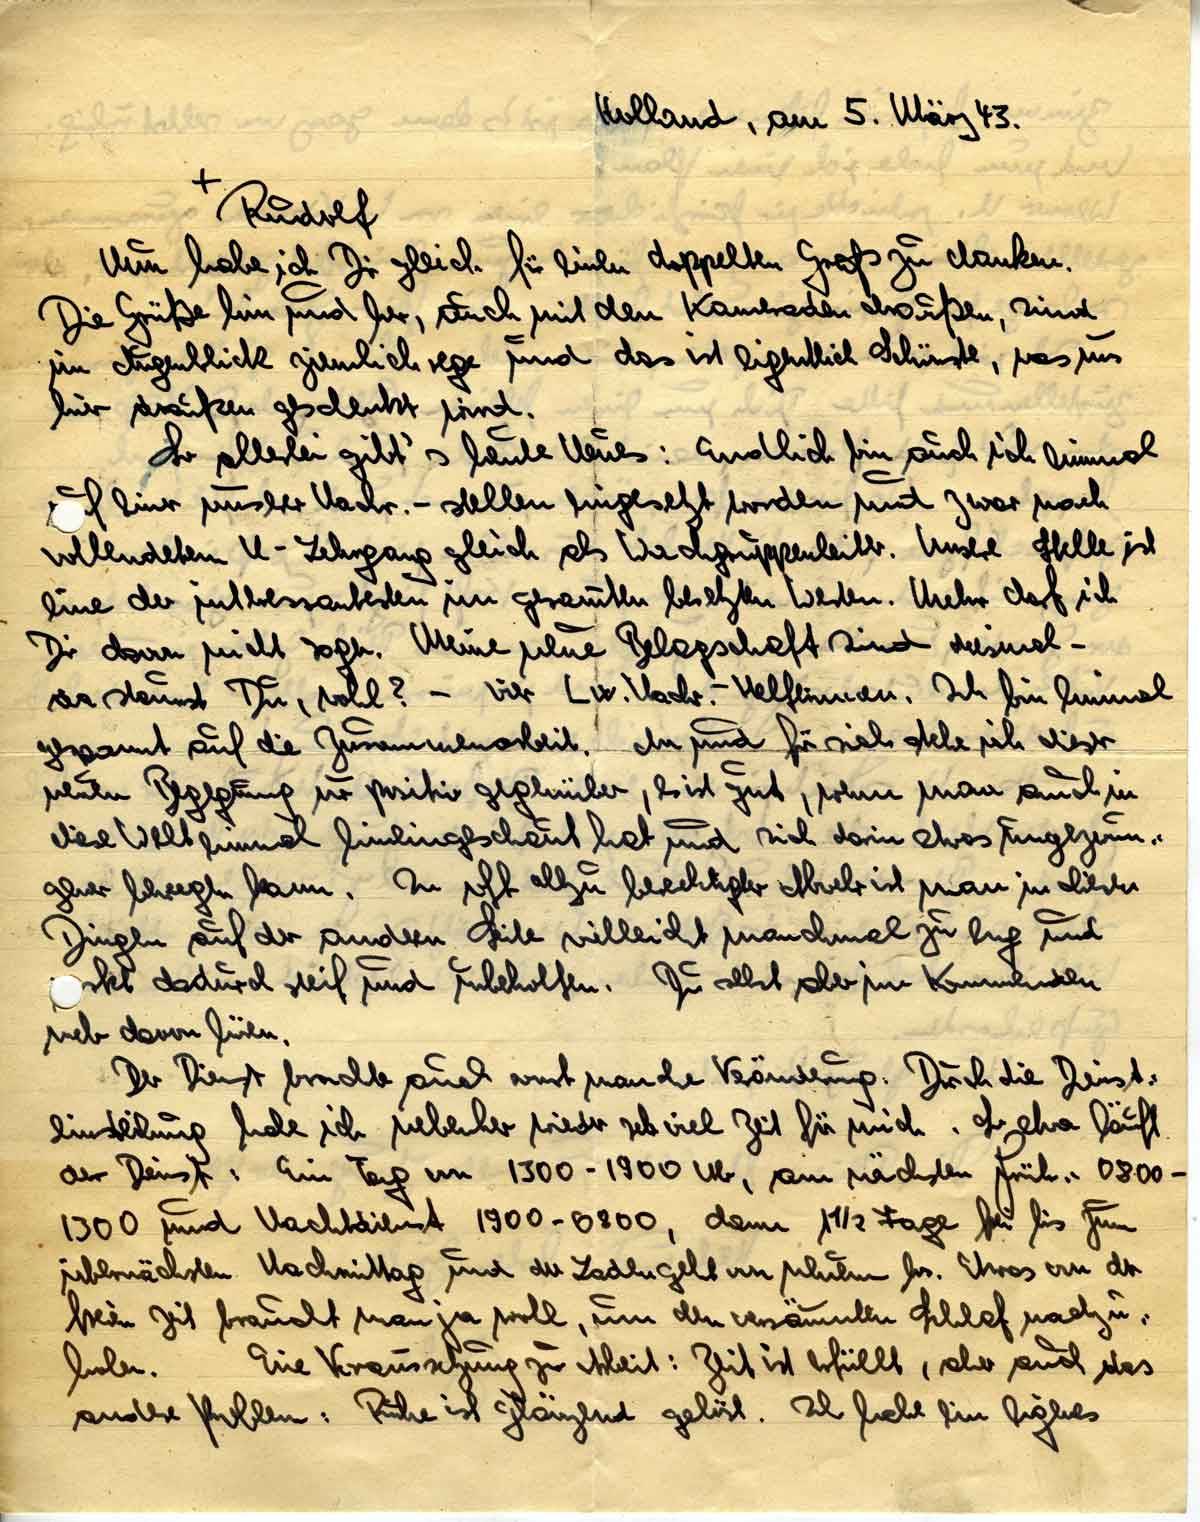 Holland, am 5. März 43.
+
Rudolf
Nun habe ich Dir gleich für einen doppelten Gruß zu danken.
Die Grüße hin und her, auch mit den Kameraden draußen, sind
im Augenblick ziemlich rege und das ist eigentlich Schönste, was uns
hier draußen geschenkt wird.
So allerlei gibt's heute Neues: Endlich bin auch ich einmal
auf einer unserer Nachr.-stellen eingesetzt worden und zwar nach
vollendetem U-Lehrgang gleich als Wachgruppenleiter. Unsere Stelle ist
eine der interessantesten im gesamten besetzten Westen. Mehr darf ich
Dir davon nicht sagen. Meine neue Belegschaft sind diesmal -
da staunst Du, wohl? - vier Lw. Nachr.-Helferinnen. Ich bin einmal
gespannt auf die Zusammenarbeit. An und für sich stehe ich dieser
neuen Begegnung nur positiv gegenüber, es ist gut, wenn man auch in
diese Welt einmal hineingeschaut hat und sich darin etwas ungezwun-
gener bewegen kann. In oft allzu berechtigter Abwehr ist man in diesen
Dingen auf der andern Seite vielleicht manchmal zu eng und
dadurch steif und unbeholfen. Du sollst aber im Kommenden
mehr davon hören.
Der Dienst brachte auch sonst manche Veränderung. Durch die Dienst-
einteilung habe ich nebenher wieder sehr viel Zeit für mich. So etwa läuft
der Dienst: Ein Tag von 1300-1900 Uhr, am nächsten Früh- 0800-
1300 und Nachtdienst 1900-0800, dann 1 1/2 Tage frei bis zum
übernächsten Nachmittag und der Laden geht von neuem los. Etwas von der
freien Zeit braucht man ja wohl, um den versäumten Schlaf nachzu-
holen. Eine Voraussetzung zur Arbeit: Zeit ist erfüllt, aber auch das
andere Problem: Ruhe ist glänzend gelöst. Ich habe ein eigenes